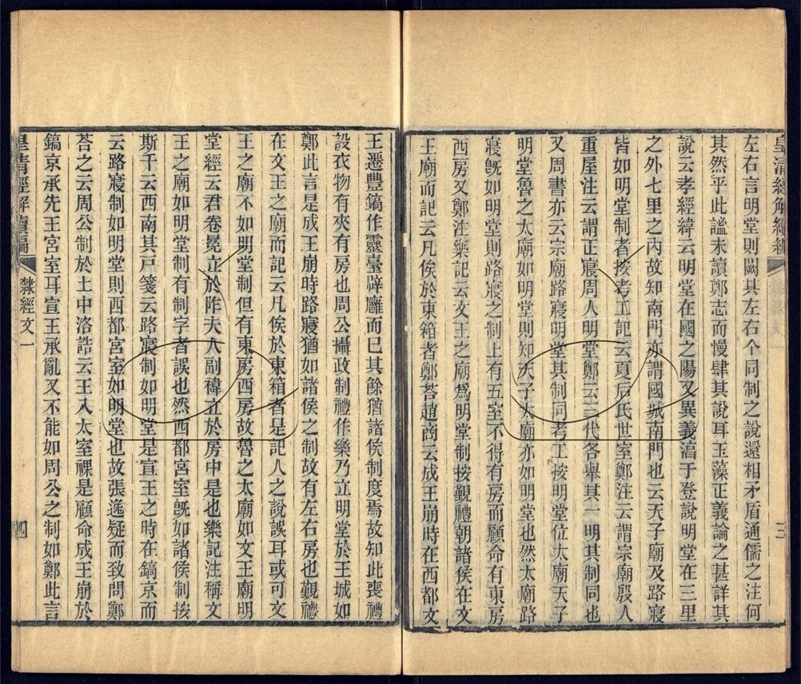 左右言明堂則闕其左右个同制之說還相矛盾通儒之注何
其然乎此謐未讀鄭志而慢肆其說耳玉藻正義論之甚詳其
說云孝經緯云明堂在國之陽又異義淳于登說明堂在三里
之外七里之內故知南門亦謂國城南門也云天子廟及路寢
皆如明堂制者按考工記云夏后氏世室鄭注云謂宗廟殷人
重屋注云謂正寢周人明堂鄭云三代各舉其一明其制同也
又周書亦云宗廟路寢明堂其制同考工按明堂位太廟天子
明堂魯之太廟如明堂則知天子太廟亦如明堂也然太廟路
寢旣如明堂則路寢之制上有五室不得有房而顧命有東房
西房又鄭注樂記云文王之廟爲明堂制按覲禮朝諸侯在文
王廟而記云凡俟於東箱者鄭荅趙商云成王崩時在西都文
三
皇淸經解續編
王遷豐鎬作靈臺辟廱而巳其餘猶諸侯制度焉故知此喪禮
設衣物有夾有房也周公攝政制禮作樂乃立明堂於王城如
鄭此言是成王崩時路寢猶如諸侯之制故有左右房也覲禮
在文王之廟而記云凡俟於東箱者是記人之說誤耳或可文
王之廟不如明堂制但有東房西房故魯之太廟如文王廟明
堂經云君卷冕立於阼夫人副褘立於房中是也樂記注稱文
王之廟如明堂制有制字者誤也然西都宮室旣如諸侯制按
斯干云西南其戶箋云路寢制如明堂是宣王之時在鎬京而
云路寢制如明堂則西都宮室如明堂也故張逸疑而致問鄭
荅之云周公制於土中洛誥云王入太室祼是顧命成王崩於
鎬京承先王宮室耳宣王承亂又不能如周公之制如鄭此言
皇淸經解續編 隸經文一 四